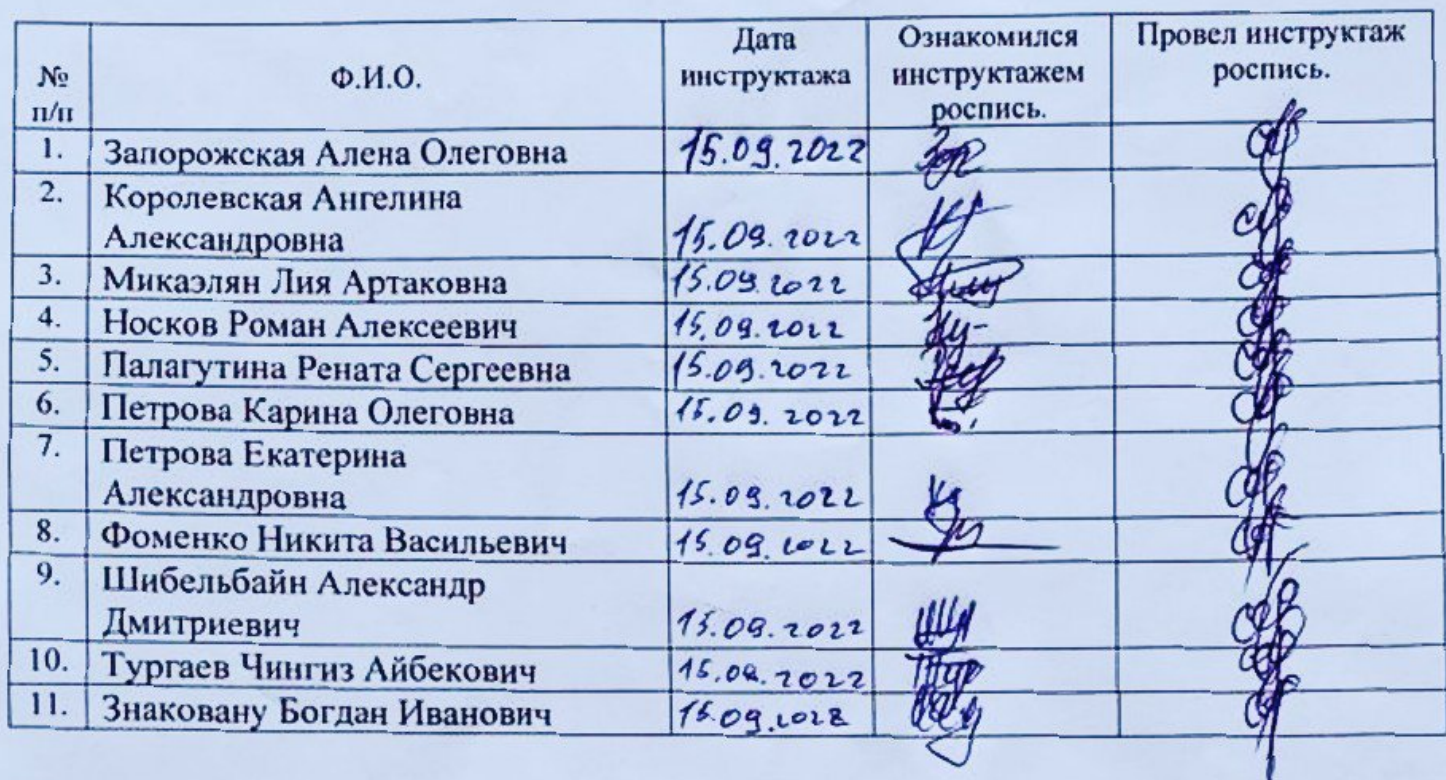 № п/п Ф.И.О. Дата инструктажа Ознакомился инструктажем роспись. Провел инструктаж роспись.
1. Запорожская Алена Олеговна 15.09.2022
2. Королевская Ангелина
Александровна 15.09.2022
3. Микаэлян Лия Артаковна 15.09.2022
4. Носков Роман Алексеевич 15.09.2022
5. Палагутина Рената Сергеевна 15.09.2022
6. Петрова Карина Олеговна 15.09.2022
7. Петрова Екатерина
Александровна 15.09.2022
8. Фоменко Никита Васильевич 15.09.2022
9. Шибельбайн Александр
Дмитриевич 15.09.2022
10. Тургаев Чингиз Айбекович 15.09.2022
11. Знаковану Богдан Иванович 15.09.2022